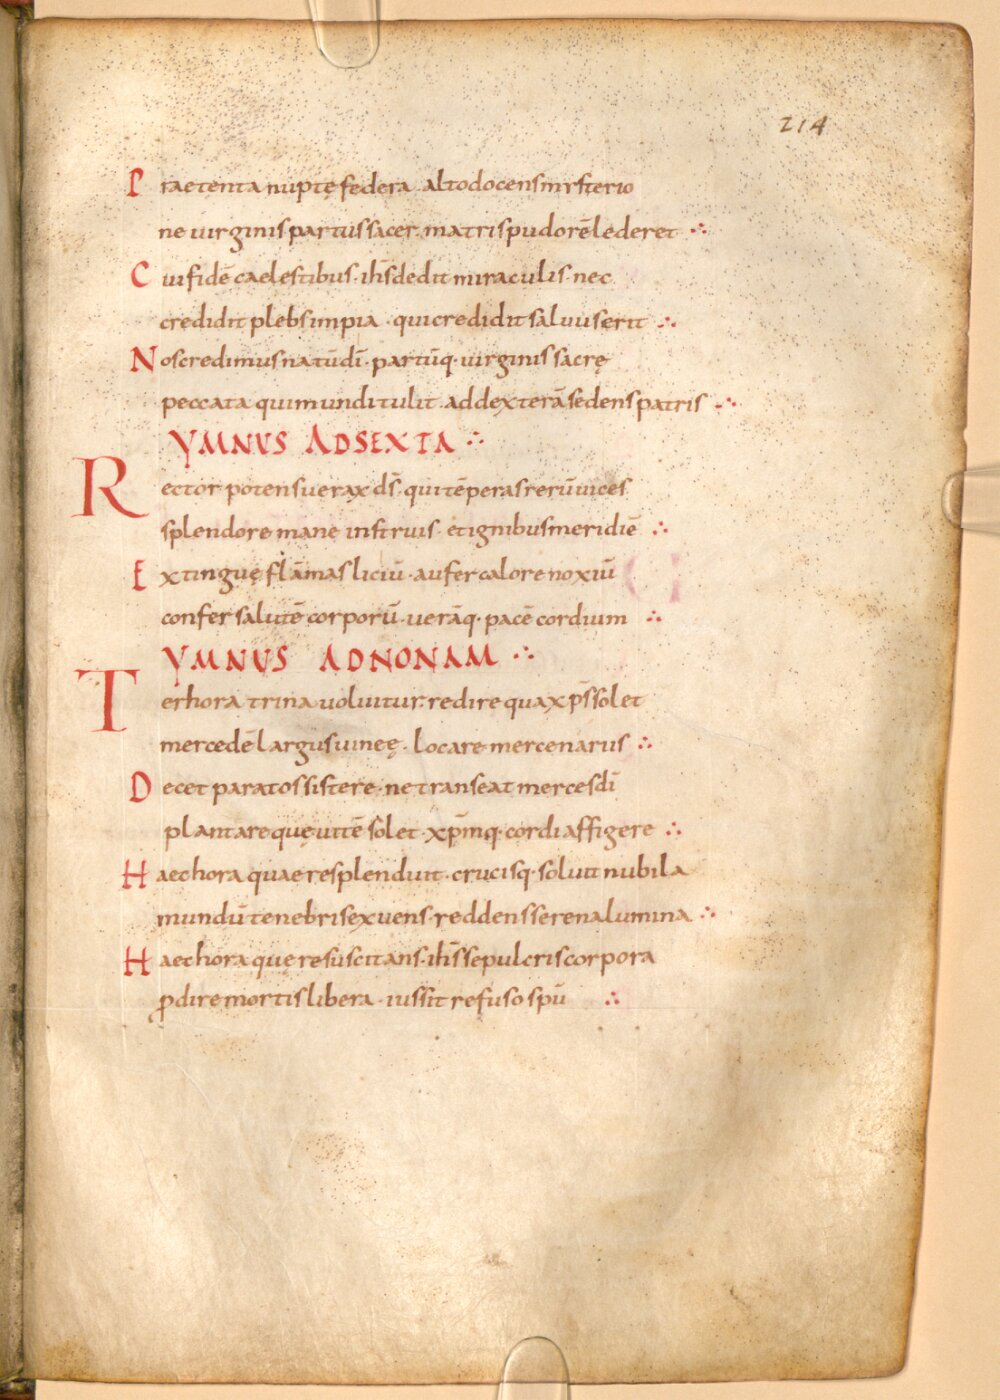 214
Praetenta nuptę federa · alto docens mysterio
ne uirginis partus sacer matris pudorē lederet ∴
Cui fidē caelestibus · ih̄s dedit miraculis · nec
credidit plebs impia · qui credidit saluus erit ∴
Nos credimus natū dī · partūq· uirginis sacrę
peccata qui mundi tulit · ad dexterā sedens patris ∴
YMNUS AD SEXTA ∴
Rector potens uerax ds̄ · qui tēperas rerū uices
splendore mane instruis · et ignibus meridiē ∴
Extinguę flāmas liciū · aufer calore noxiū
confer salutē corporū · uerāq· pacē cordium ∴
YMNUS AD NONAM ∴
Ter hora trina uoluitur · redire quax ps̄ solet
mercedē largus uineę · locare mercenarus ∴
Decet paratos sistere · ne transeat merces dī
plantare quę uitē solet · xp̄mq· cordi affigere ∴
Haec hora quae resplenduit · crucisq· soluit nubila
mundū tenebris exuens · reddens serena lumina ∴
Haec hora quę resuscitans · ih̄s sepulcris corpora
ꝓdire mortis libera · iussit refuso spū ∴